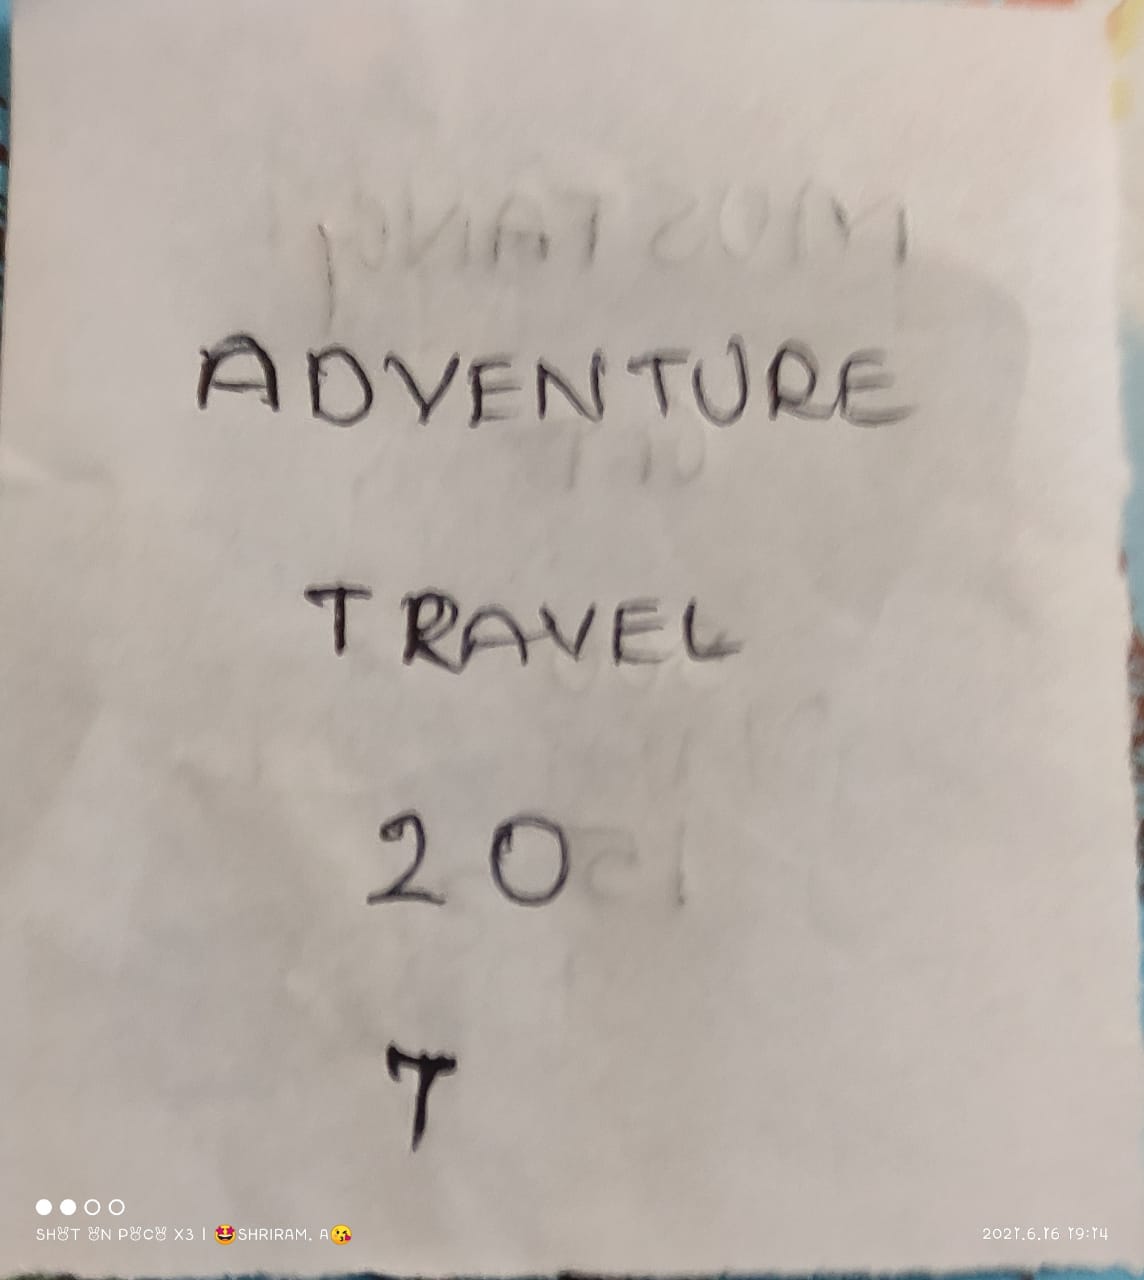 ADVENTURE
TRAVEL
20
7
SHOT ON POCO X3 | 🤩SHRIRAM. A😘
2021.6.16 19:14